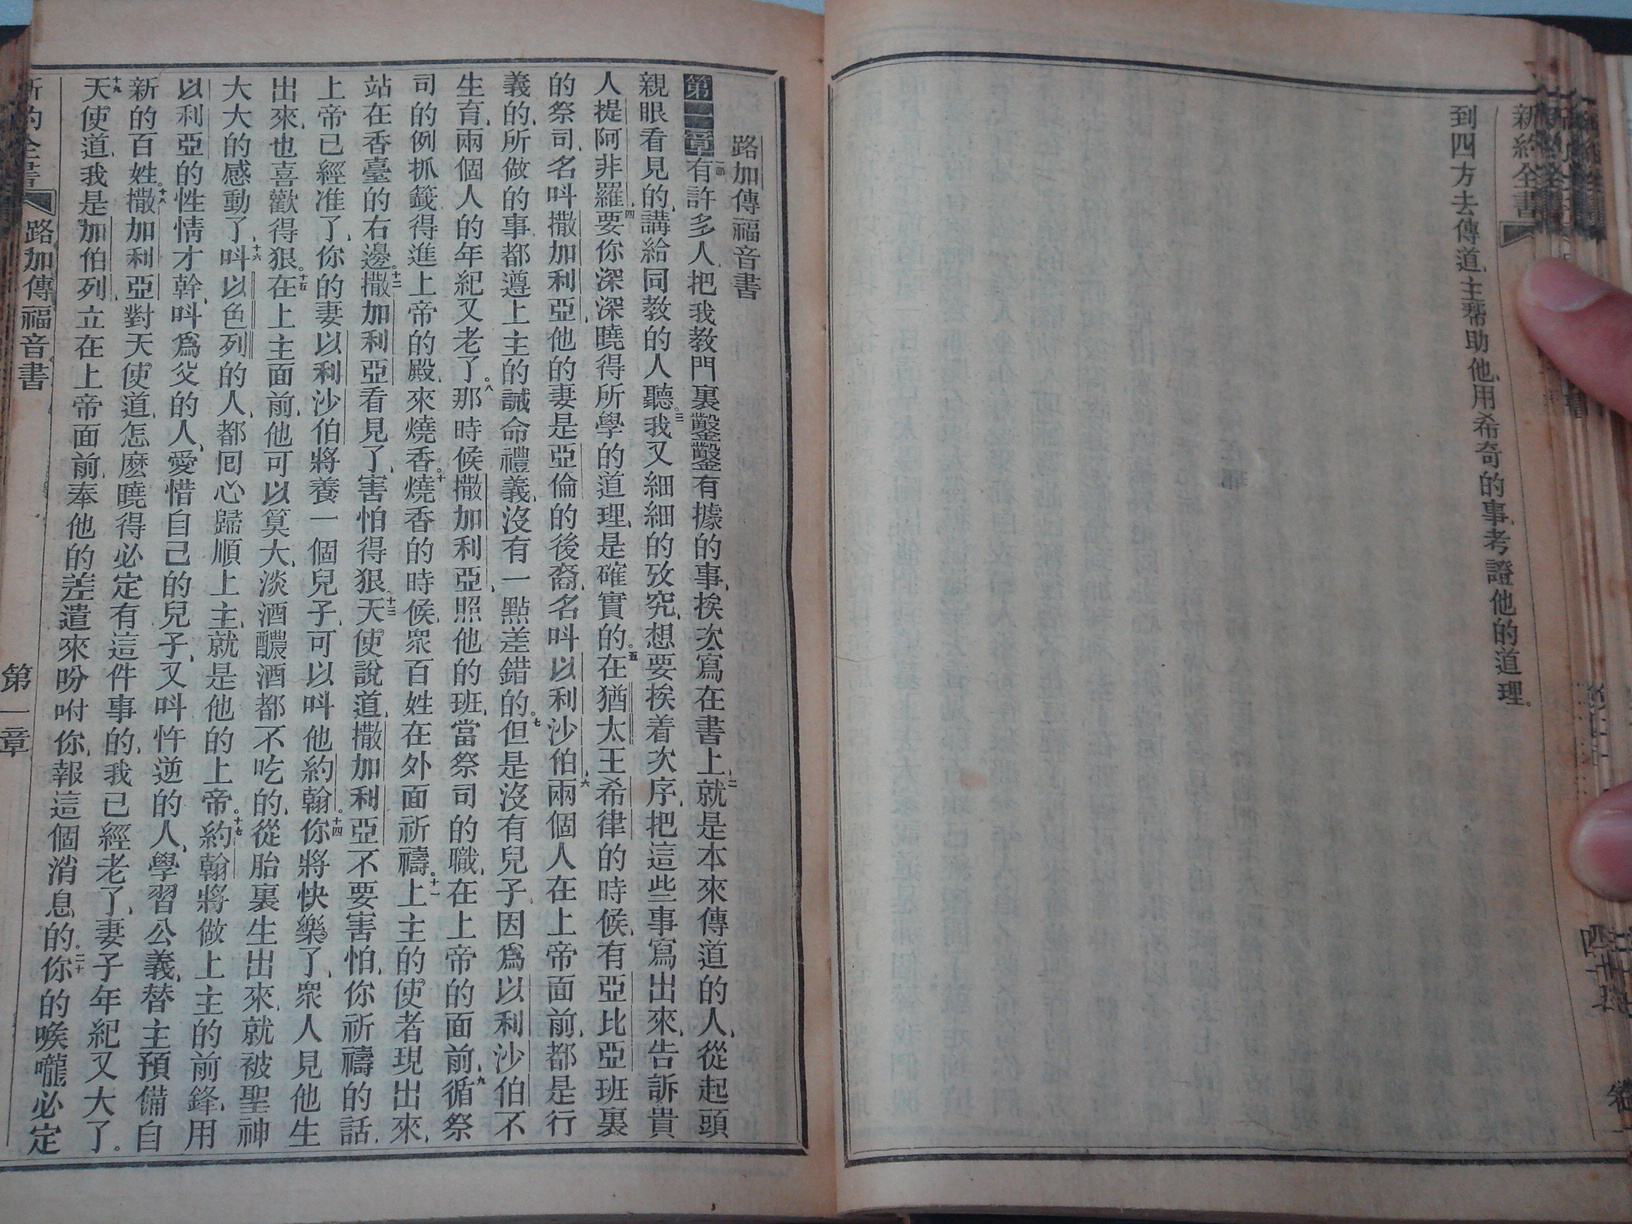 新約全書
到四方去傳道、主幫助他、用希奇的事、考證他的道理。
路加傳福音書
第一章 一有許多人、把我教門裏鑿鑿有據的事、挨次寫在書上、二就是本來傳道的人、從起頭
親眼看見的、講給同教的人聽。三我又細細的攷究、想要挨着次序、把這些事寫出來、告訴貴
人提阿非羅、四要你深深曉得所學的道理、是確實的。五在猶太王希律的時候、有亞比亞班裏
的祭司、名呌撒加利亞、他的妻是亞倫的後裔、名呌以利沙伯、六兩個人在上帝面前、都是行
義的、所做的事都遵上主的誡命禮義、沒有一點差錯的。七但是沒有兒子、因爲以利沙伯不
生育、兩個人的年紀又老了。八那時候撒加利亞照他的班、當祭司的職、在上帝的面前、九循祭
司的例抓籤、得進上帝的殿、來燒香。十燒香的時候、眾百姓在外面祈禱。十一上主的使者現出來、
站在香臺的右邊。十二撒加利亞看見了、害怕得狠。十三天使說道、撒加利亞不要害怕、你祈禱的話、
上帝已經准了、你的妻以利沙伯將養一個兒子、可以呌他約翰。十四你將快樂了、眾人見他生
出來、也喜歡得狠。十五在上主面前、他可以算大、淡酒醲酒都不吃的、從胎裏生出來、就被聖神
大大的感動了、十六呌以色列的人、都囘心歸順上主、就是他的上帝。十七約翰將做上主的前鋒、用
以利亞的性情才幹、呌爲父的人、愛惜自己的兒子、又呌忤逆的人、學習公義、替主預備自
新的百姓。十八撒加利亞對天使道、怎麽曉得必定有這件事的、我已經老了、妻子年紀又大了。
十九天使道、我是加伯列、立在上帝面前、奉他的差遣來吩咐你、報這個消息的。二十你的喉嚨必定
新約全書 路加傳福音書 第一章